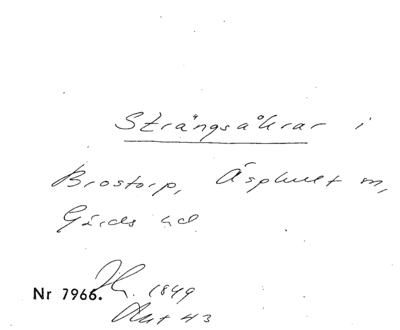 Strängsåkrar i
Brostorp, Äsphult m,
Gärds hd
Nr 7966. 1849
43